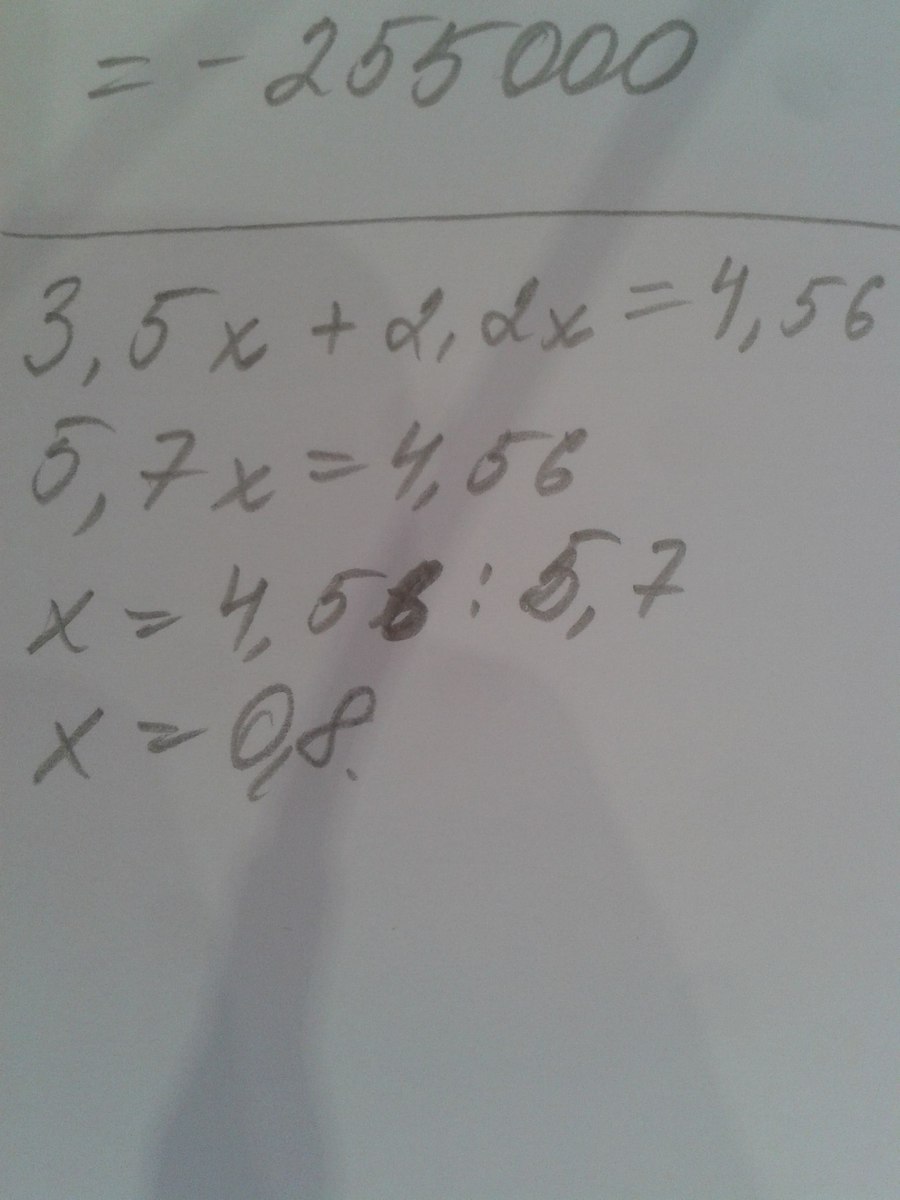 = - 255000
3,5x + 2,2x = 4,56
5,7x = 4,56
x = 4,56 : 5,7
x = 0,8.